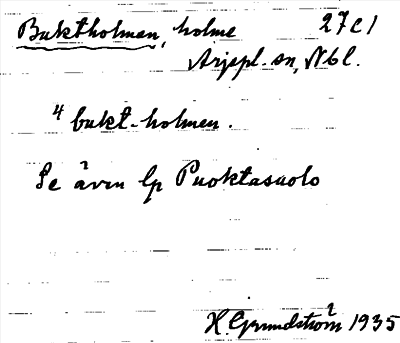 Buktholmen, holme 27c1
Arjepl. sn, Nbl.
4 bukt-holmen.
Se även lp Puoktasuolo
H. Grundström 1935